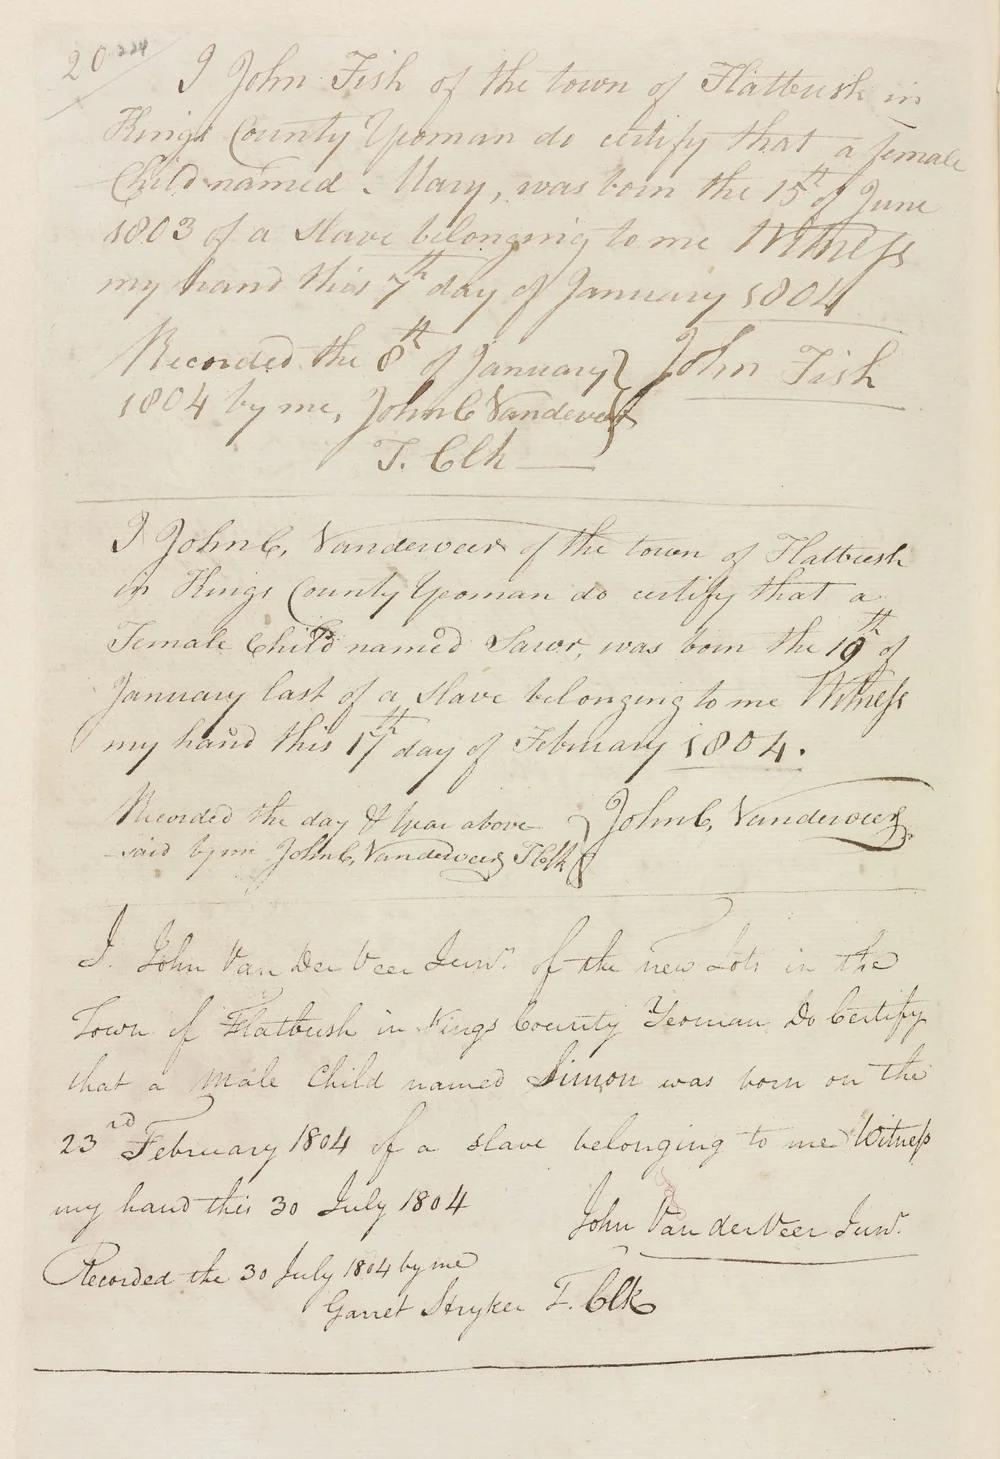 20 224
I John Fish of the town of Flatbush in
Kings County Yeoman do certify that a female
Child named Mary, was born the 15th of June
1803 of a slave belonging to me Witness
my hand this 7th day of January 1804
Recorded the 8th of January John Fish
1804 by me, John C Vandeveer
T. Clk
I John C, Vanderveer of the town of Flatbush
in Kings County Yeoman do certify that a
Female Child named was born the 19th of
January last of a slave belonging to me Witness
my hand this 17th day of February 1804.
Recorded the day & Year above John C, Vanderveer
said by me John C, Vanderveer T Clk
I. John Van Der Veer Junr. of the new Lots in the
Town of Flatbush in Kings County Yeoman Do Certify
that a Male Child named Simon was born on the
23rd February 1804 of a slave belonging to me Witness
my hand this 30 July 1804
John Van der Veer Junr.
Recorded the 30 July 1804 by me
Garret Stryker T. Clk